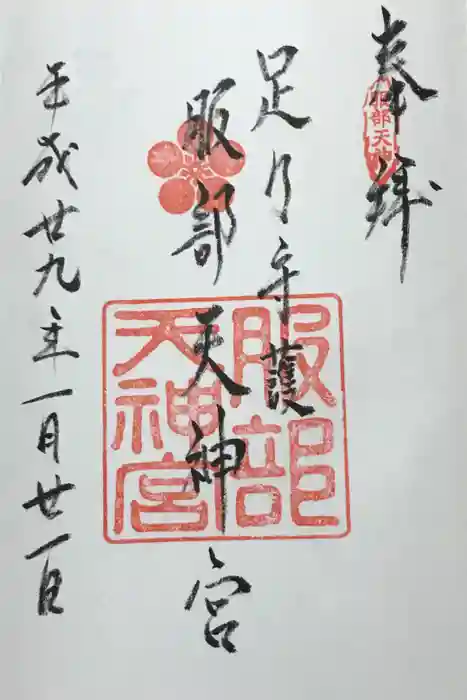 奉拝
服部天神
足乃守護
服部天神宮
服部
天神宮
平成廿九年一月廿一日